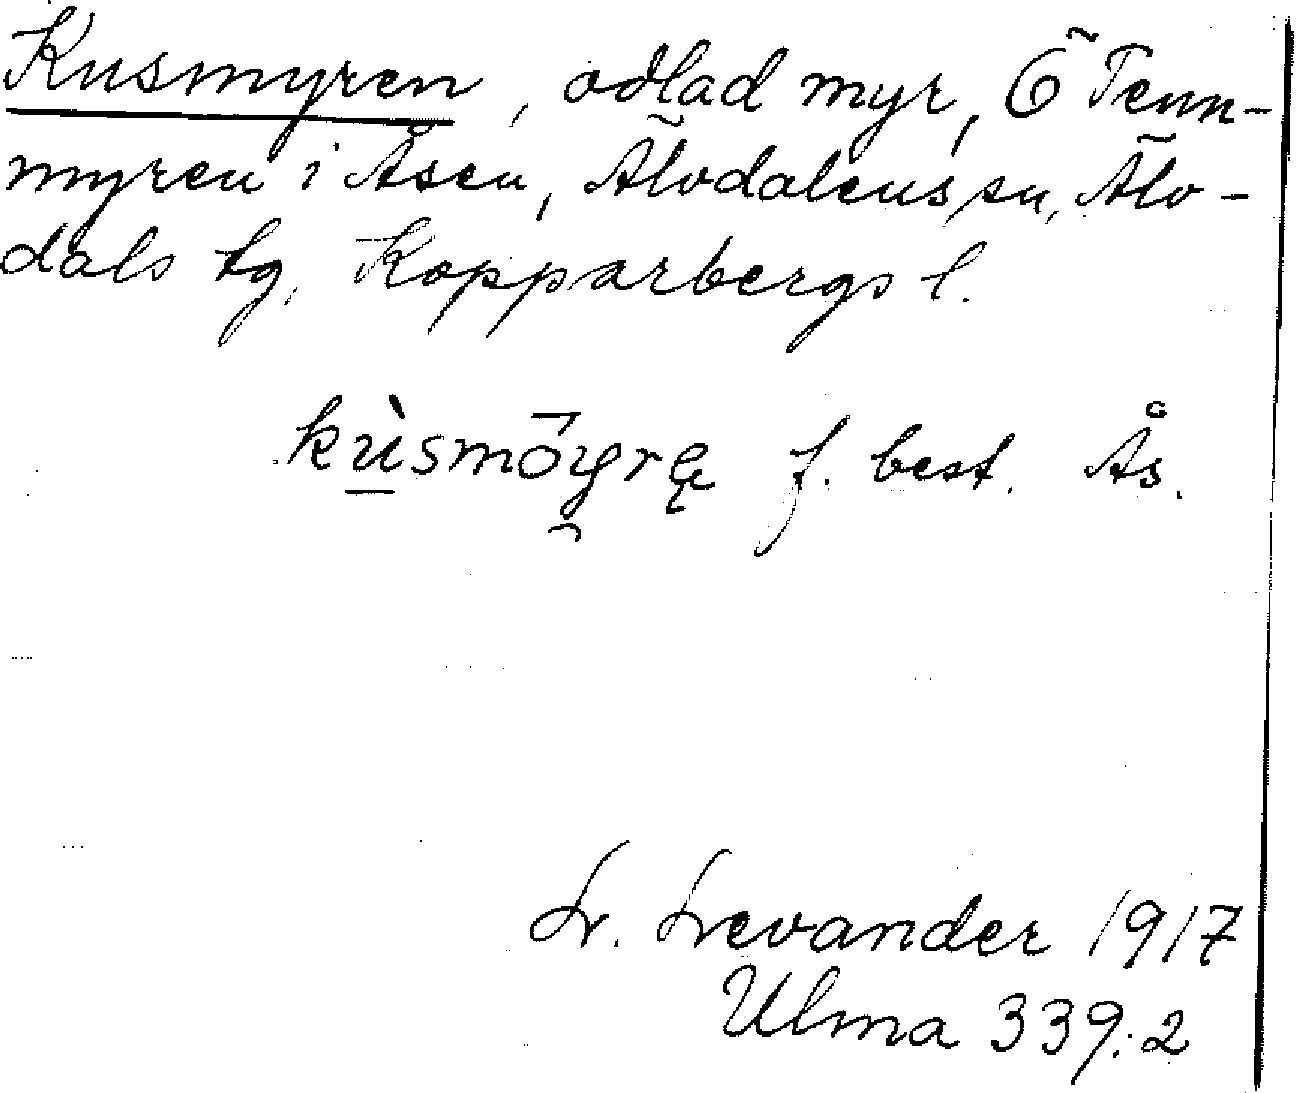 Kusmyren, odlad myr, Ö Tenn-
myren i Åsen, Älvdalens sn, Älv-
dals tg, Kopparbergs l.
kùsmōyrę f. best. Ås.
L. Levander 1917
Ulma 339:2